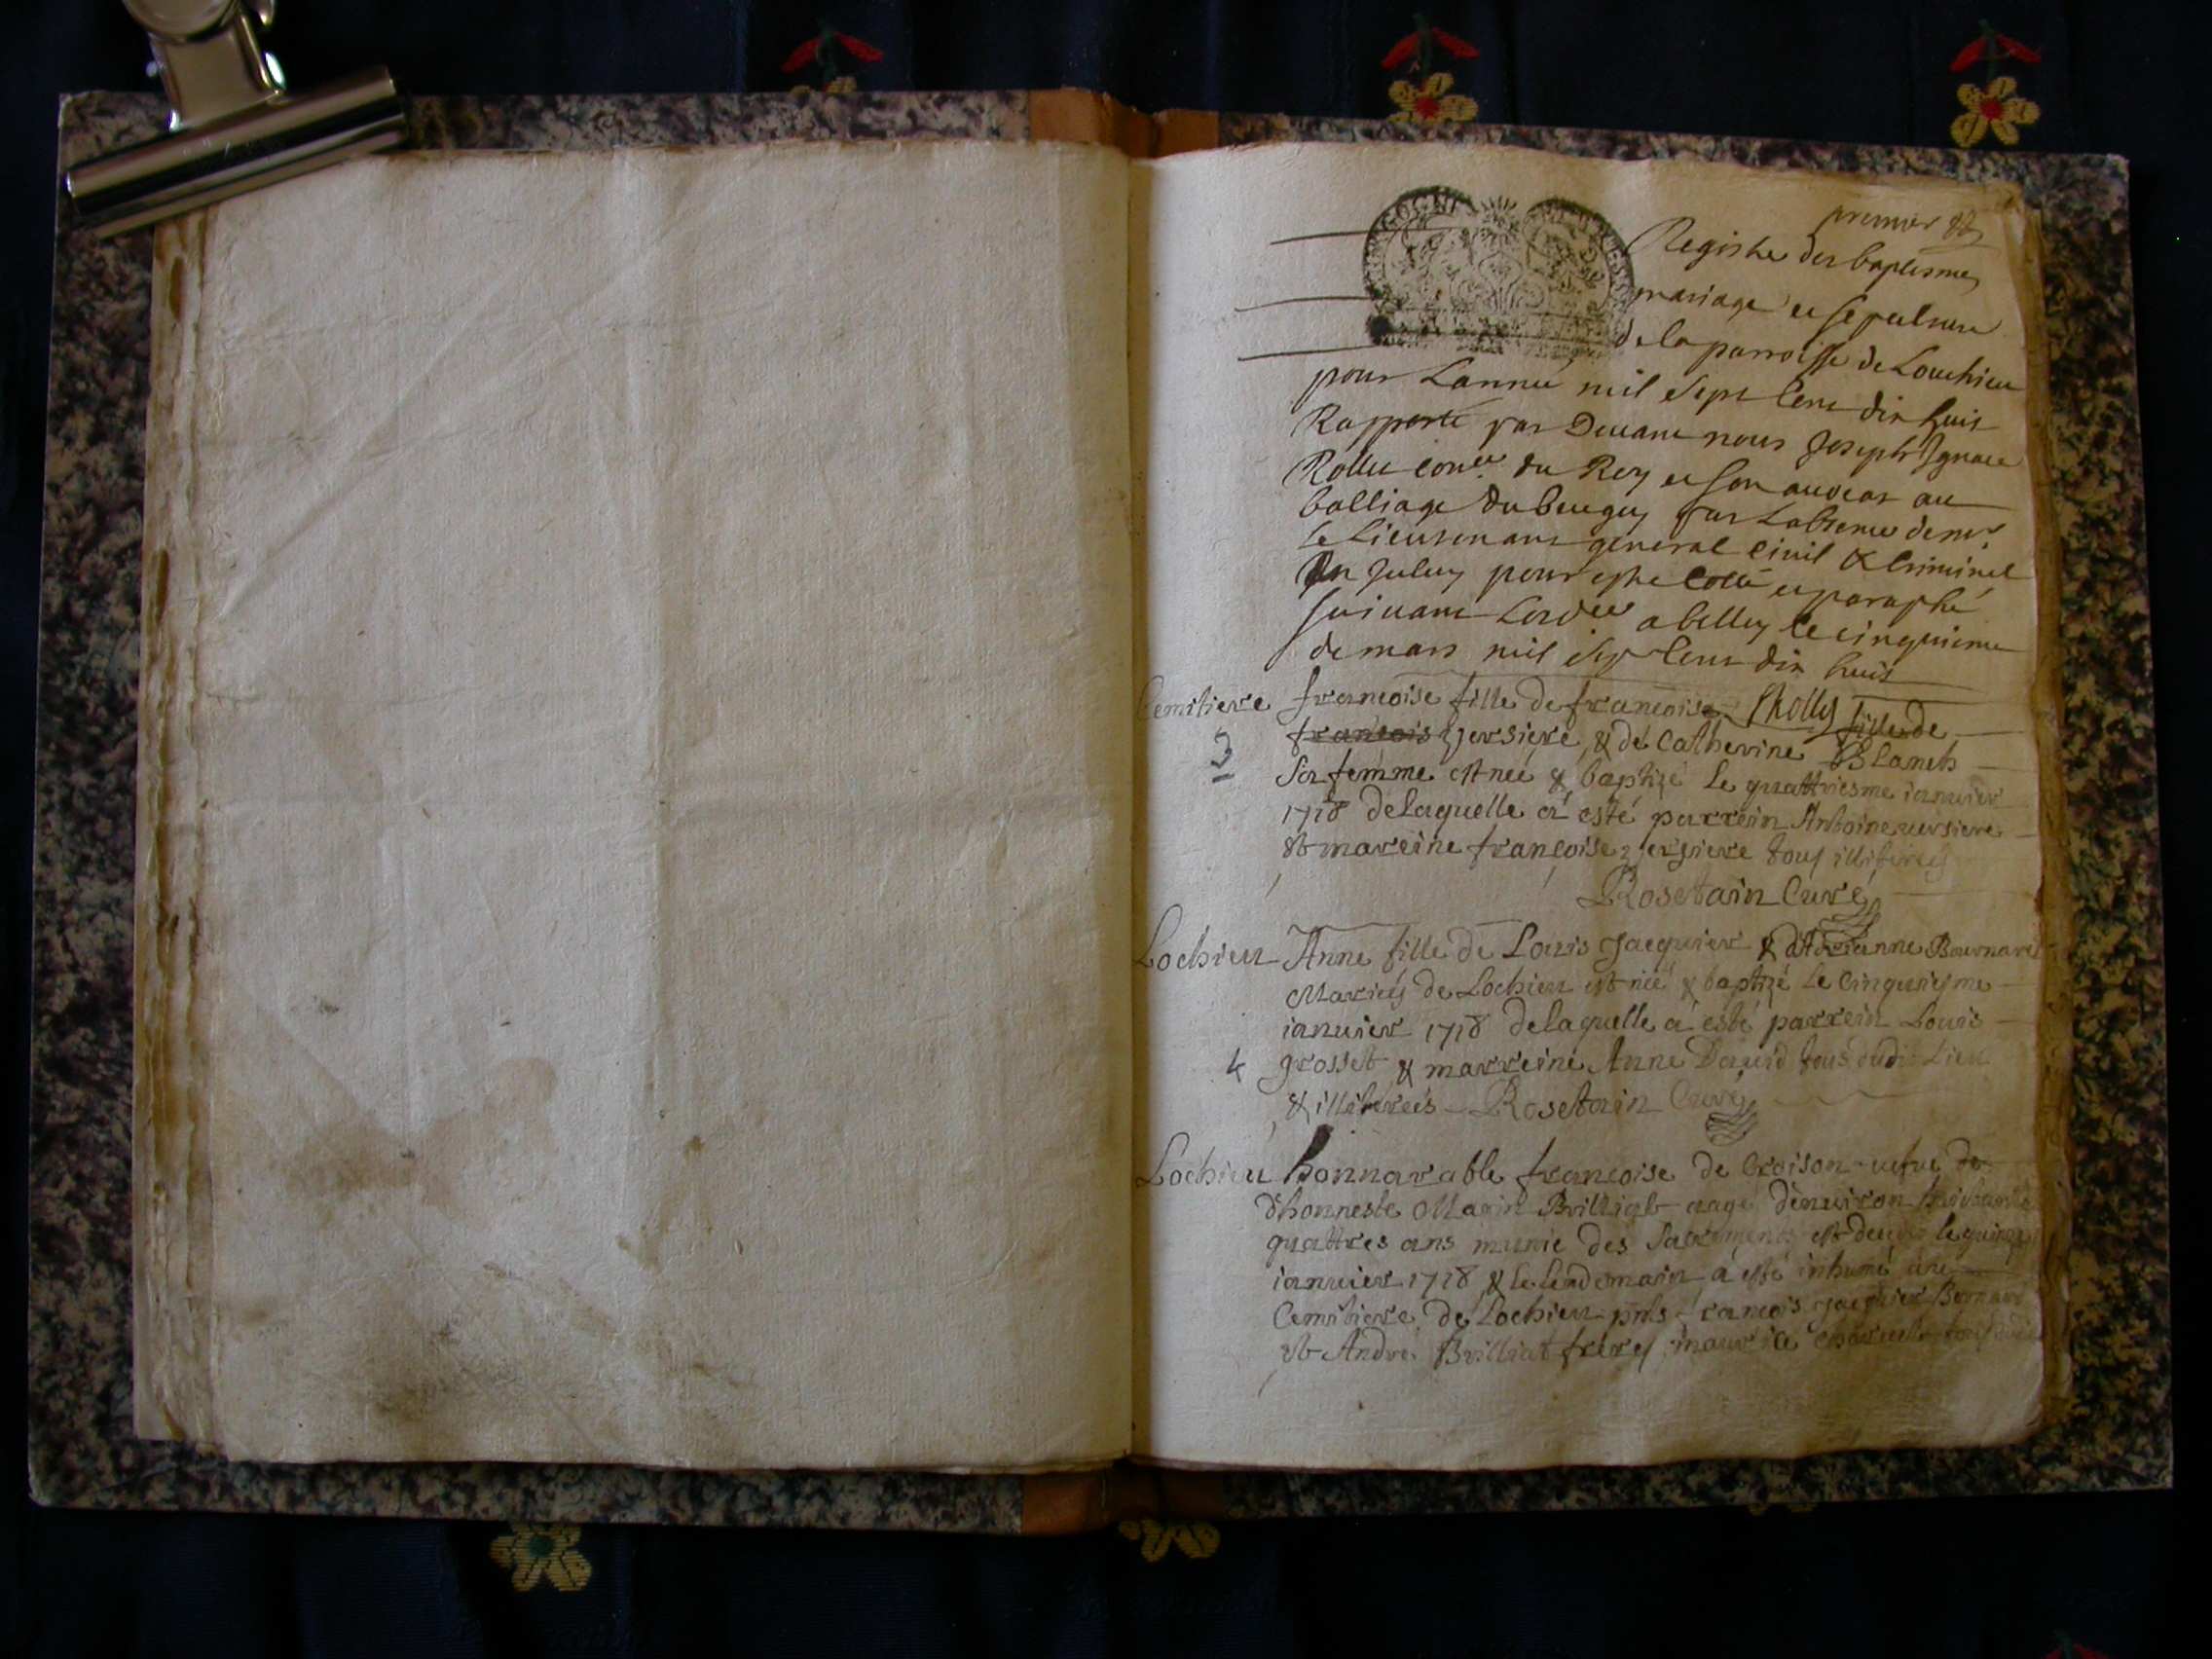 premier
Registre des baptesmes
mariage et sepulture
de la parroisse de Louchieu
pour Lannée mil sept Cent dix huit
Rapporté par Devant nous Joseph Ignace
Rollet coner. du Roy et son auocat au
balliage du beugey par Labsence de mr
le Lieutenant general Ciuil & Criminel
pour estre Cotté et paraphé
suiuant Lordce a belley le cinquieme
de mars mil sept Cent dix huit
Cemitiere francoise fille de francoise Rollet fille de
francois uersiere & de Catherine Blanch
3
sa femme est née & baptizé le quattriesme ianuier
1718 de laquelle a esté parrein Antoine uersiere
et mareine françoise uersiere tous illiterés
Rosetain Curé
Lochieu Anne fille de Louis Jacquier & dAdrianne Bournard
Mariés de Lochieu est née & baptizé le Cinquiesme
ianuier 1718 de laquelle a esté parrein Louis
4 grosset & marreine Anne Dauid tous dudit Lieu
& illiterés Rosetain Curé
Lochieu honnorable francoise de Croison uefue de
dhonneste Marin Brilliat aagé denuiron
quattres ans munie des Sacrements est decedé le
ianuier 1718 & le lendemain a esté inhumé au
Cemitiere de Lochieu pnts francois Jacquier Bernard
et André Brilliat freres maurice tous